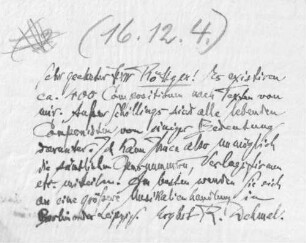 (16.12.4.)
Sehr geehrter Herr Röttger! Es existiren
ca. 400 Compositionen nach Texten von
mir. Außer Schillings sind alle lebenden
Componisten von einiger Bedeutung
darunter. Ich kann Ihnen also unmöglich
die sämtlichen Opusnummern, Verlagsfirmen
etc. mitteilen. Am besten wenden Sie sich
an eine größere Musikalienhandlung in
Berlin oder Leipzig. R. Dehmel.